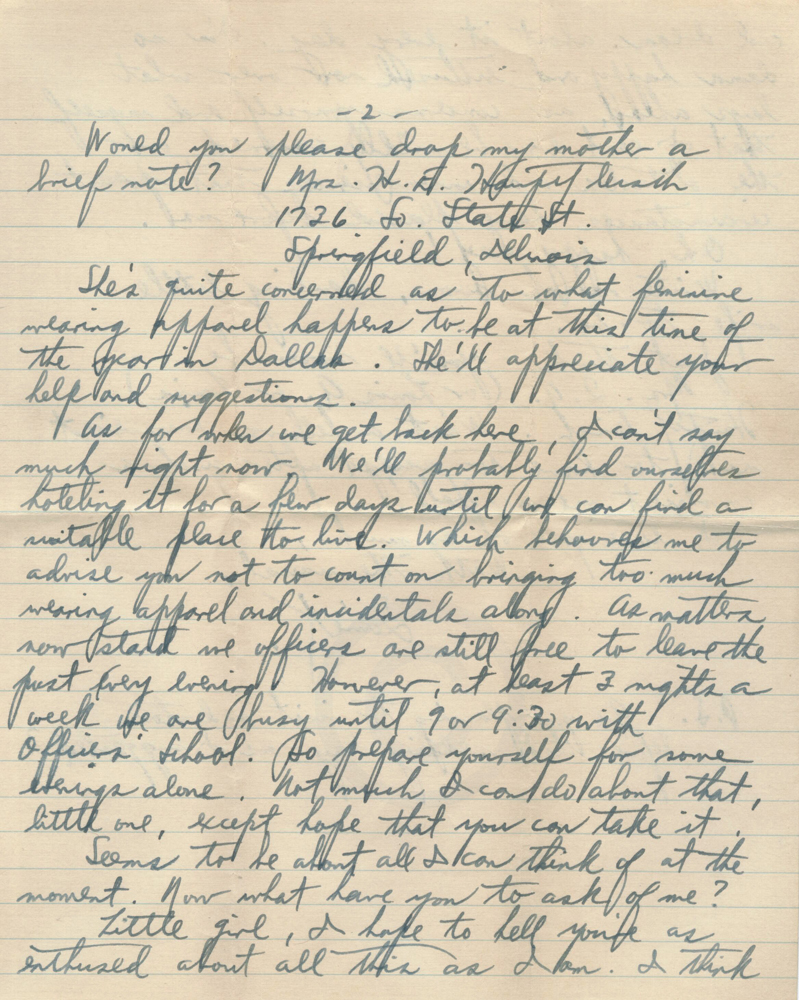 - 2 -
Would you please drop my mother a
brief note? Mrs. H. A.
1726 So. State St.
Springfield, Illinois
She's quite concerned as to what feminine
wearing apparel happens to be at this time of
the year in Dallas. She'll appreciate your
help and suggestions.
As for when we get back here, I can't say
much right now. We'll probably find ourselves
hoteling it for a few days until we can find a
suitable place to live. Which behooves me to
advise you not to count on bringing too much
wearing apparel and incidentals along. As matters
now stand we officers are still free to leave the
post every evening. However, at least 3 nights a
week we are busy until 9 or 9:30 with
Officers' School. So prepare yourself for some
evenings alone. Not much I can do about that,
little one, except hope that you can take it.
Seems to be about all I can think of at the
moment. Now what have you to ask of me?
Little girl, I hope to hell you're as
enthused about all this as I am. I think